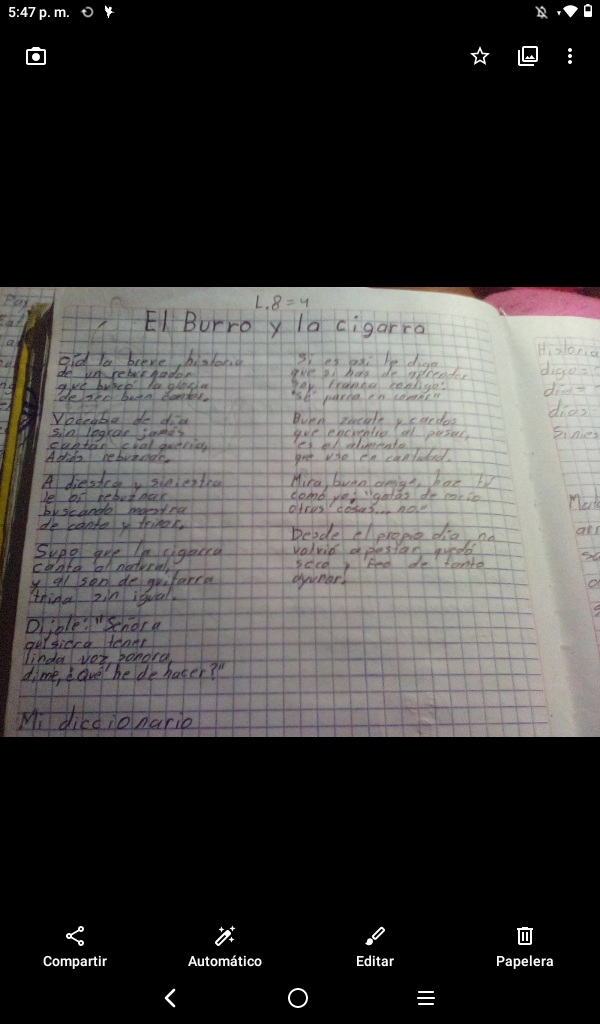 5:47 p. m.
L.8=4
El Burro y la cigarra
Oíd la breve historia
de un rebuznador
que buscó la gloria
de ser buen cantor.
Voceaba de día
sin lograr jamás
cantar cual quería,
Adiós rebuznar.
A diestra y siniestra
le oí rebuznar
buscando maestra
de canto y trinar.
Supo que la cigarra
canta al natural,
y al son de guitarra
trina sin igual.
Díjole: "Señora
quisiera tener
linda voz sonora,
dime, ¿Qué he de hacer?"
Mi diccionario
Si es así le digo
que si has de aprender
soy franca contigo:
"sé parca en comer"
Buen zacate y cardos
que encuentro al pasar,
es el alimento
que uso en cantidad.
Mira, buen amigo, haz tú
como yo: "gotas de rocío
otras cosas... no"
Desde el propio día no
volvió a pastar, quedó
seco y feo de tanto
ayunar.
Historia
digo=
día=
días
Sinies
Compartir
Automático
Editar
Papelera